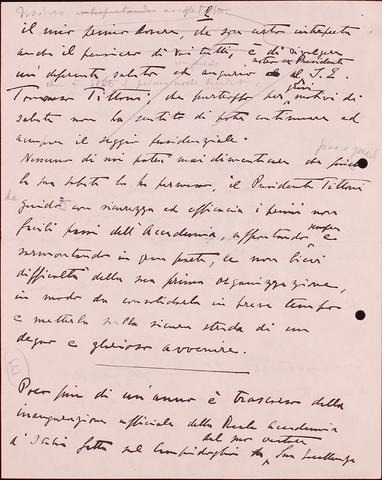 2
il mio primo dovere, che son certo interpreta
anche il pensiero di Voi tutti, è di rivolgere
un deferente saluto ed augurio al nostro ex Presidente S. E.
Tommaso Tittoni che purtroppo per gravi motivi di
salute non ha sentito di poter continuare ad
occupare il seggio presidenziale.
Nessuno di noi potrà mai dimenticare che
la sua salute lo ha permesso, il Presidente Tittoni
guidò con sicurezza ed efficacia i primi non
facili passi dell'Accademia, affrontando e
sormontando in gran parte, le non lievi
difficoltà della sua prima organizzazione,
in modo da consolidarla in breve tempo
e metterla sulla sicura strada di un
degno e glorioso avvenire.
Poco più di un anno è trascorso dalla
inaugurazione ufficiale della Reale Accademia
d'Italia fatta sul Campidoglio Sua Eccellenza